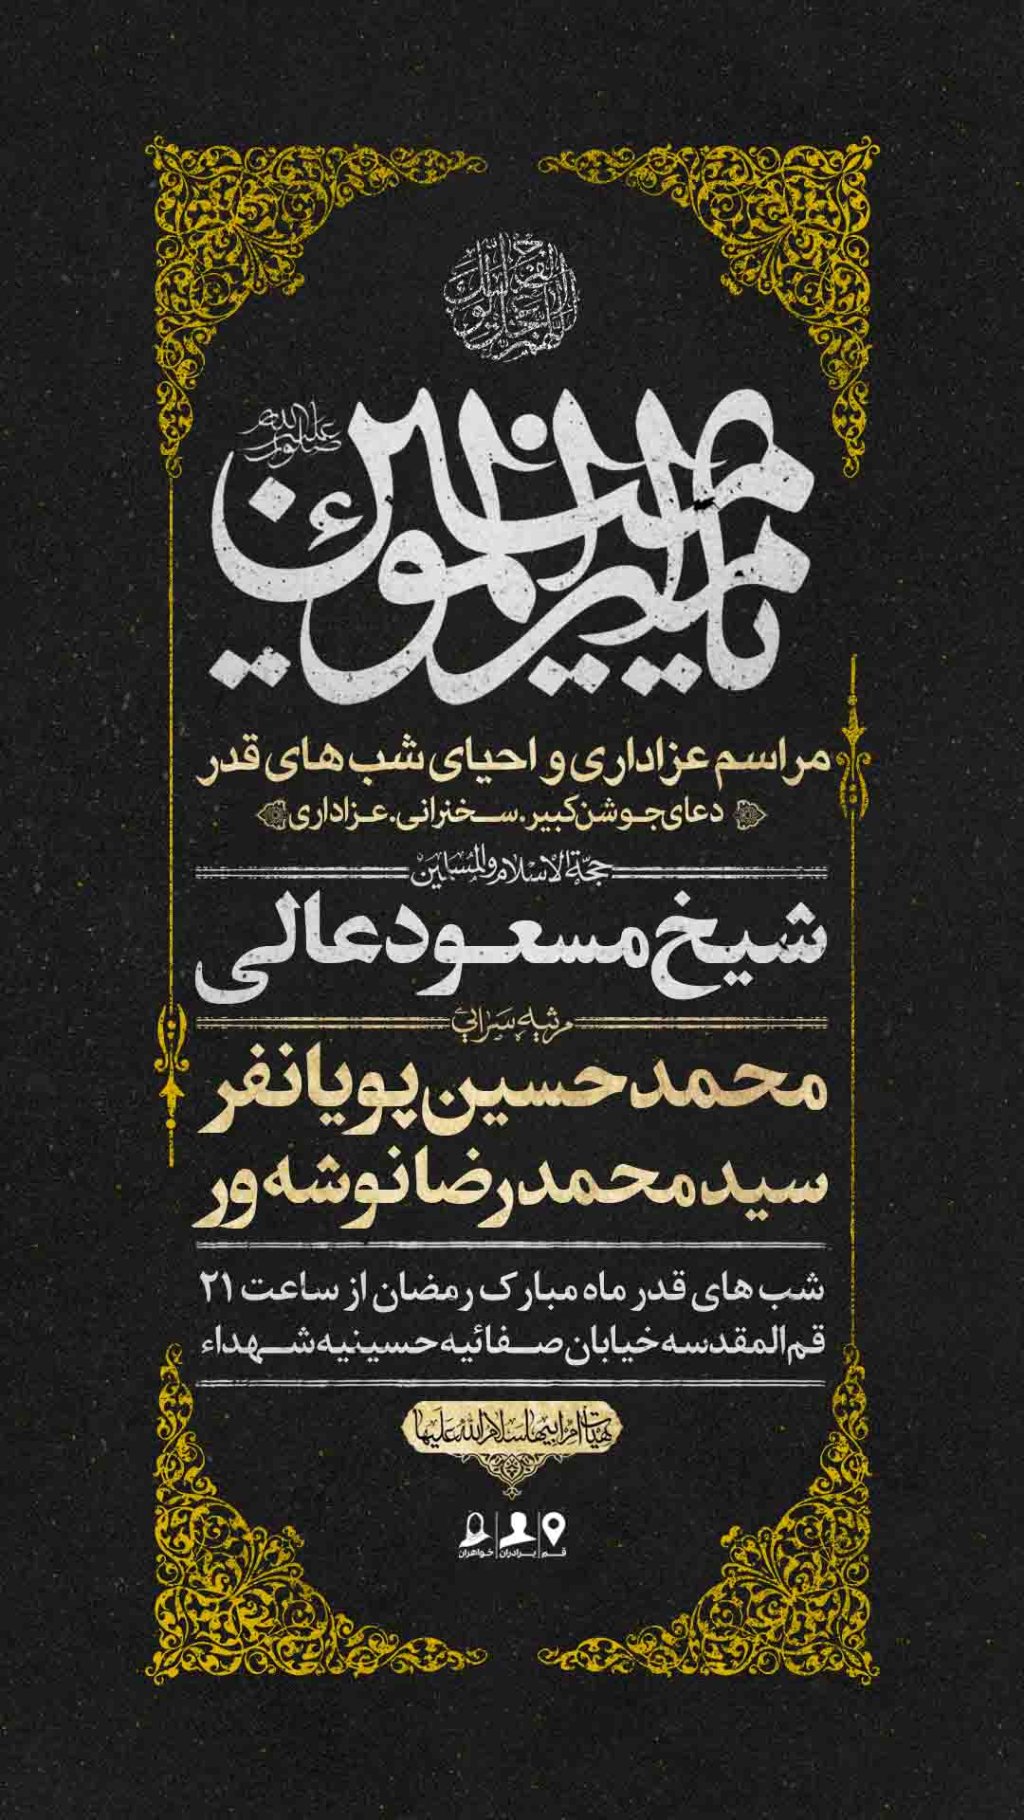 یا امیرالمومنین
صلوات الله علیه
مراسم عزاداری و احیای شب های قدر
دعای جوشن کبیر . سخنرانی . عزاداری
حجة الاسلام والمسلمین
شیخ مسعود عالی
مرثیه سرایی
محمد حسین پویانفر
سید محمدرضا نوشه ور
شب های قدر ماه مبارک رمضان از ساعت ۲۱
قم المقدسه خیابان صفائیه حسینیه شهداء
هیات ام ابیها سلام الله علیها
قم | برادران | خواهران